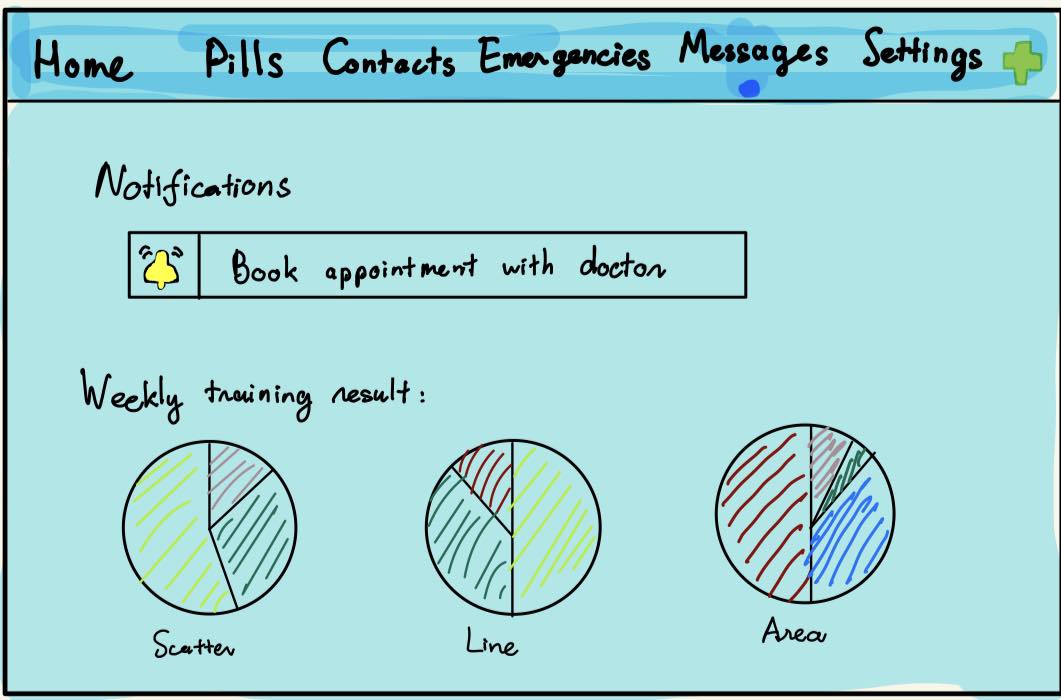 Home Pills Contacts Emergencies Messages Settings
Notifications
Book appointment with doctor
Weekly training result:
Scatter Line Area